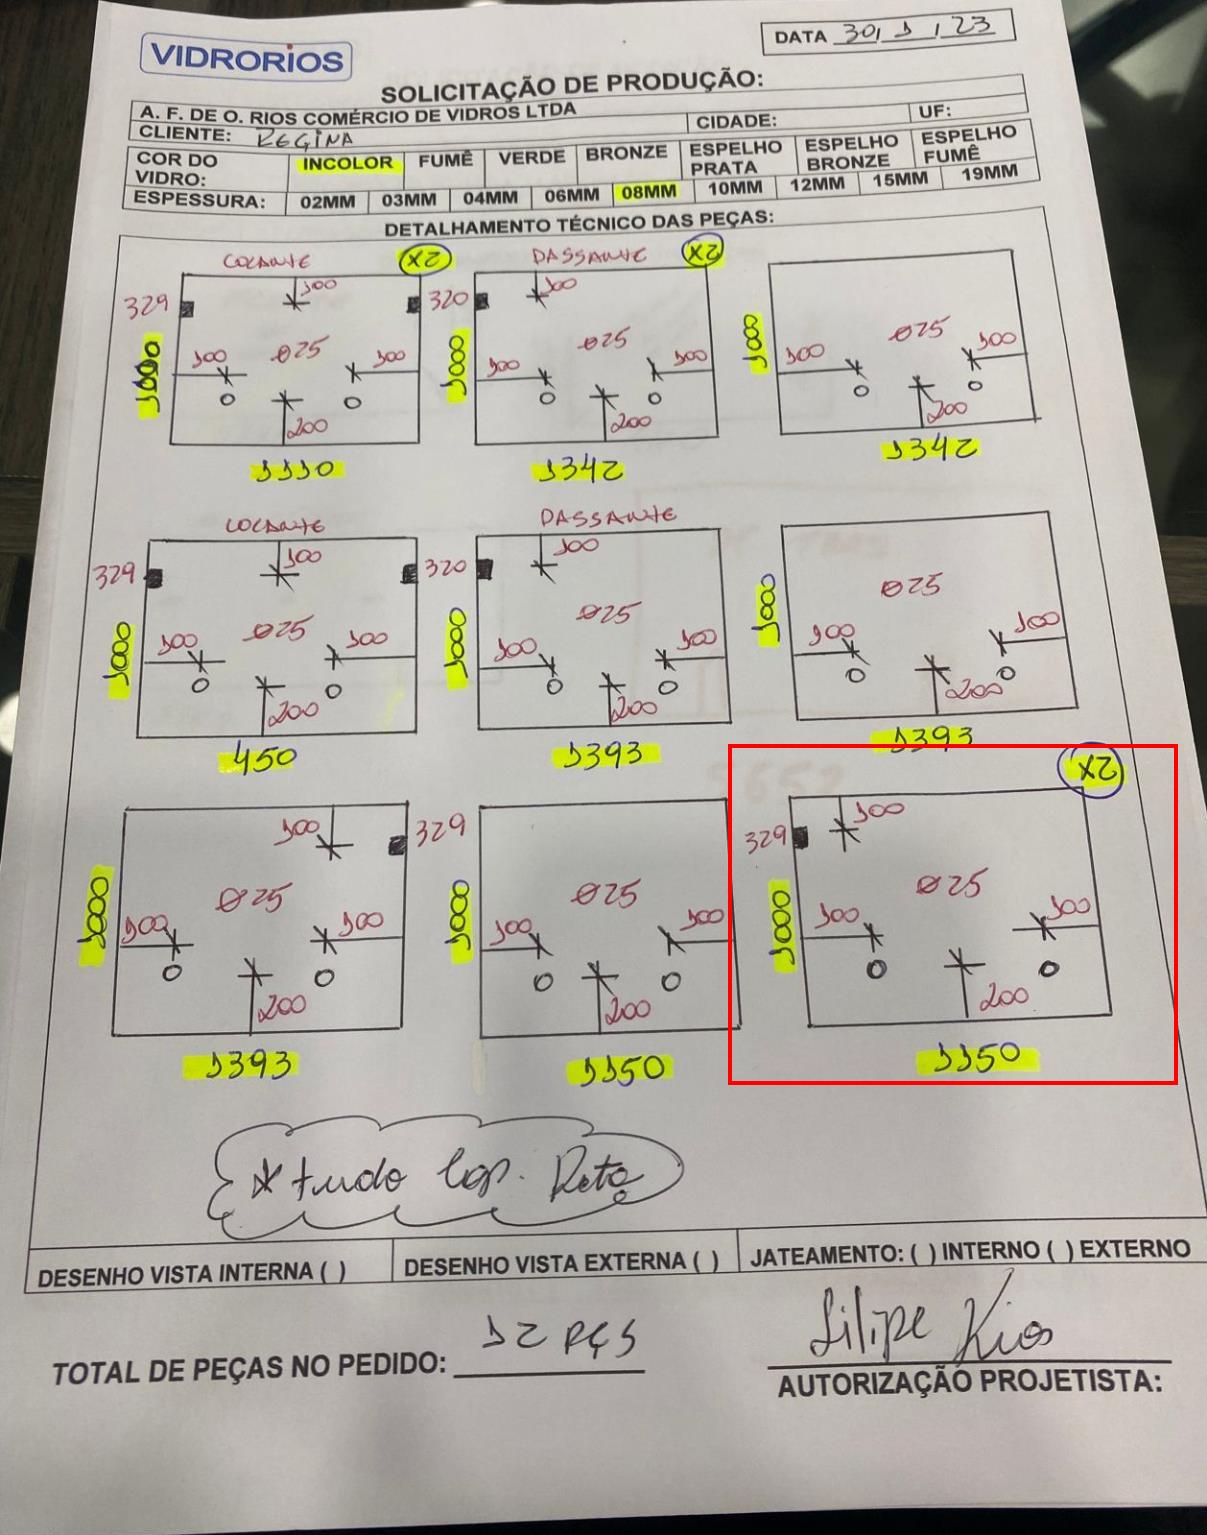 VIDRORIOS
DATA 30, 1, 23
SOLICITAÇÃO DE PRODUÇÃO:
A. F. DE O. RIOS COMÉRCIO DE VIDROS LTDA
CIDADE:
UF:
CLIENTE: REGINA
COR DO VIDRO:
INCOLOR
FUMÊ
VERDE
BRONZE
ESPELHO PRATA
ESPELHO BRONZE
ESPELHO FUMÊ
ESPESSURA:
02MM
03MM
04MM
06MM
08MM
10MM
12MM
15MM
19MM
DETALHAMENTO TÉCNICO DAS PEÇAS:
PASSANTE
2X
2X
329
100
320
100
1000
100
Ø25
100
200
1110
1000
100
Ø25
100
200
1342
1000
100
Ø25
100
200
1342
PASSANTE
329
100
320
100
1000
100
Ø25
100
200
450
1000
100
Ø25
100
200
1393
1000
100
Ø25
100
200
1393
2X
100
329
1000
100
Ø25
100
200
1393
1000
100
Ø25
100
200
1150
329
100
1000
100
Ø25
100
200
1150
* tudo Lap. Reta
DESENHO VISTA INTERNA ( )
DESENHO VISTA EXTERNA ( )
JATEAMENTO: ( ) INTERNO ( ) EXTERNO
TOTAL DE PEÇAS NO PEDIDO: 12 PÇS
Filipe Rios
AUTORIZAÇÃO PROJETISTA: